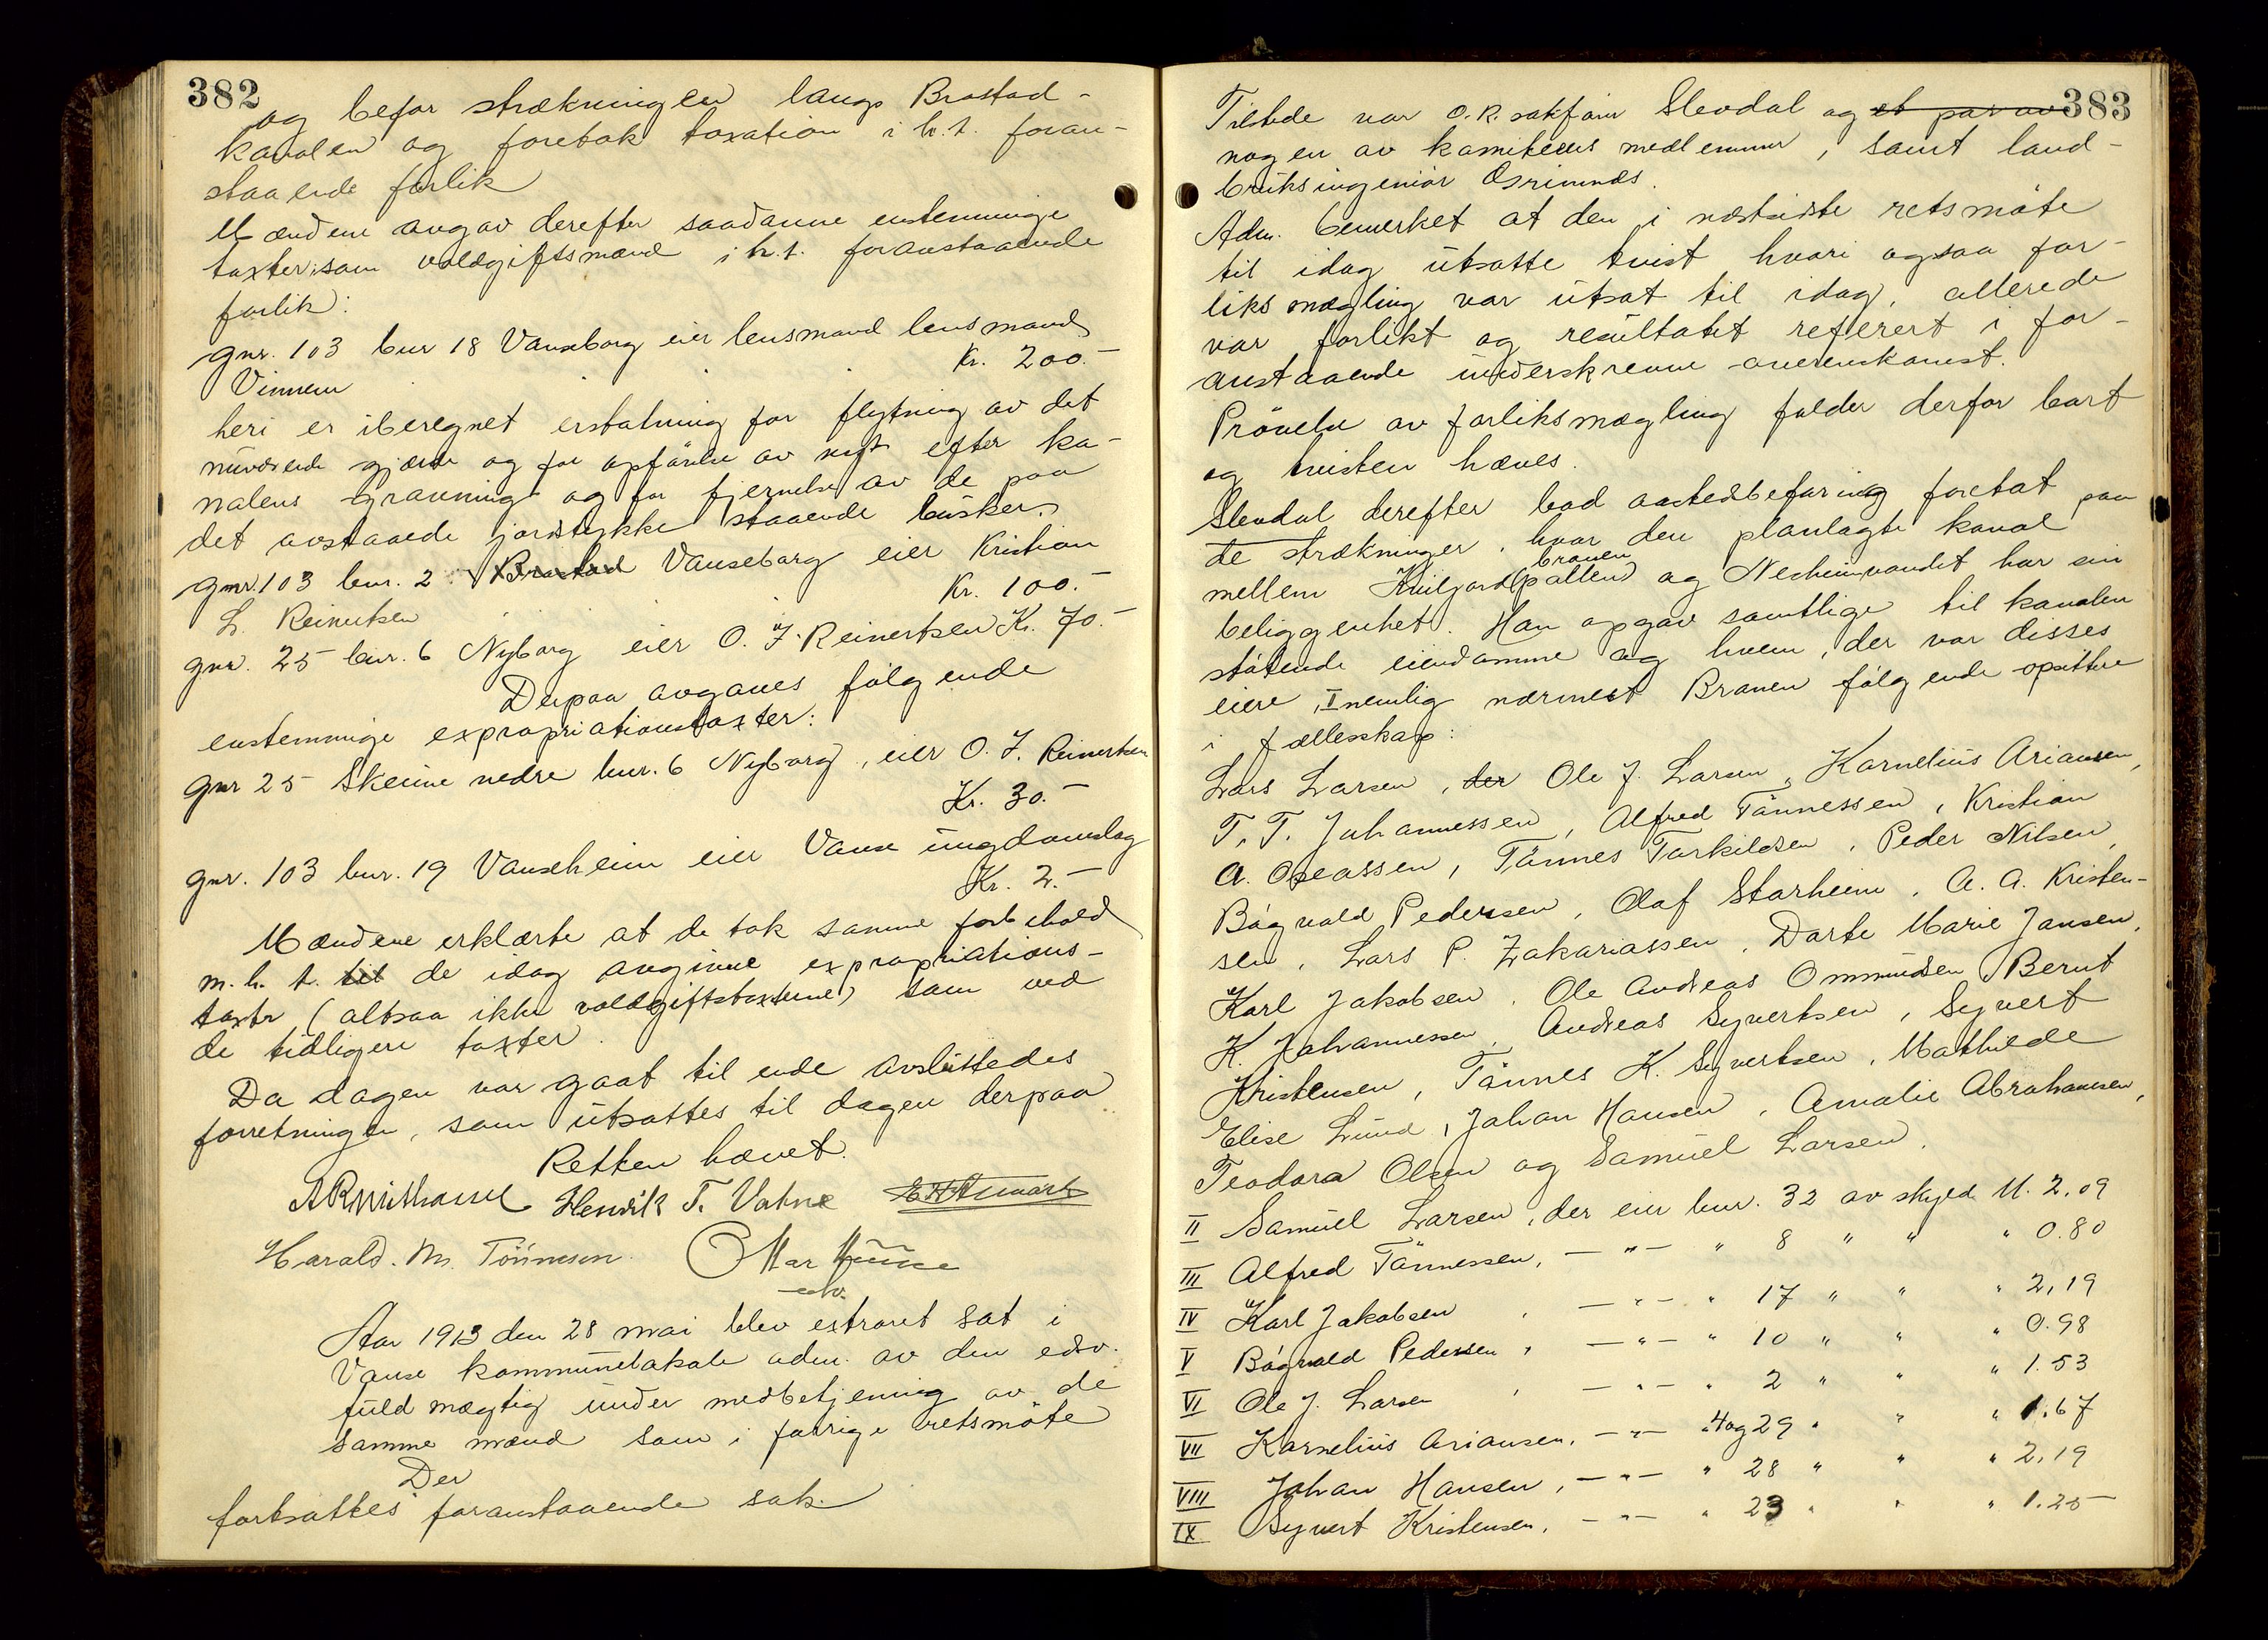 382
og befor strækningen langs Brastad-
kanalen og foretok taxation i h.t. foran-
staaende forlik
Mændene avgav derefter saadanne enstemmige
taxter som voldgiftsmænd i h.t. foranstaaende
forlik:
gnr. 103 bnr 18 Vanseborg eier lensmand lensmand
Vinnem Kr. 200.-
heri er iberegnet erstatning for flytning av det
nuværende gjærde og for opførelse av nyt efter ka-
nalens gravning og for fjernelse av de paa
det avstaaede jordstykke staaende busker.
gnr. 103 bnr. 2 Brastad Vanseborg eier Kristian
L. Reinertsen Kr. 100.-
gnr. 25 bnr. 6 Nyborg eier O. F. Reinertsen Kr. 70.-
Derpaa avgaves følgende
enstemmige expropriationstaxter:
gnr 25 Skeime nedre bnr. 6 Nyborg, eier O. F. Reinertsen
Kr. 30.-
gnr. 103 bnr. 19 Vanseheim eier Vanse ungdomslag
Kr. 2.-
Mændene erklærte at de tok samme forbehold
m.h.t. til de idag avgivne expropriations-
taxter (altsaa ikke voldgiftstaxterne) som ved
de tidligere taxter.
Da dagen var gaat til ende avsluttedes
forretningen, som utsattes til dagen derpaa
Retten hævet.
Henrik T. Vatne
Harald. M. Tönnesen Ottar
edv.
Aar 1913 den 28 mai blev extraret sat i
Vanse kommunelokale adm. av den edsv.
fuldmægtig under medbetjening av de
samme mænd som i forrige retsmöte
Der
fortsattes foranstaaende sak.
383
Tilstede var o.r.sakfører Slevdal og et par av
nogen av komiteens medlemmer, samt land-
bruksingeniør Grimnes.
Adm. bemerket at den i næstsidste retsmöte
til idag utsatte tvist hvori ogsaa for-
liksmægling var utsat til idag, allerede
var forlikt og resultatet referert i for-
anstaaende underskrevne overenskomst.
Prövelse av forliksmægling falder derfor bort
og tvisten hæves.
Slevdal derefter bad aastedsbefaring foretat paa
de strækninger, hvor den planlagte kanal
brauen
mellem (pollen) og Nesheimvandet har sin
beliggenhet. Han opgav samtlige til kanalen
støtende eiendomme og hvem, der var disses
eiere, I nemlig nærmest Branen følgende opsittere
i fællesskap:
Lars Larsen, der Ole J. Larsen, Kornelius Ariansen,
T. T. Johannessen, Alfred Tönnessen, Kristian
A. Oseassen, Tönnes Torkildsen, Peder Nilsen,
Bøgvald Pedersen, Olaf Storheim, A. A. Kristen-
sen, Lars P. Zakariassen, Dorte Marie Jansen,
Karl Jakobsen, Ole Andreas Ommundsen, Bernt
K. Johannessen, Andreas Syvertsen, Syvert
Kristensen, Tönnes K. Syvertsen, Mathilde
Elise Lund, Johan Hansen, Amalie Abrahamsen,
Teodora Olsen og Samuel Larsen.
II Samuel Larsen, der eier bnr. 32 av skyld M. 2,09
III Alfred Tönnessen, — " — " 8 " " " 0.80
IV Karl Jakobsen, — " — " 17 " " " 2,19
V Bøgvald Pedersen, — " — " 10 " " " 0.98
VI Ole J. Larsen, — " — " 2 " " " 1.53
VII Kornelius Ariansen, — " — " 4 og 29 " " " 1.67
VIII Johan Hansen, — " — " 28 " " " 2,19
IX Syvert Kristensen, — " — " 23 " " " 1.25